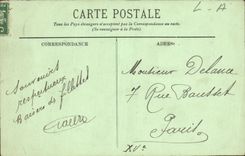 L-A
CARTE POSTALE
Tous les Pays étrangers n'acceptent pas la Correspondance au recto.
(Se renseigner à la Poste)
CORRESPONDANCE
ADRESSE
Souvenirs
respectueux
Baisers de
Monsieur Delance
7 Rue Bausset
Paris
XVe